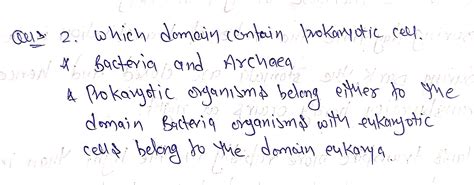 Ques 2. which domain contain prokaryotic cell.
A. Bacteria and Archaea
& Prokaryotic organisms belong either to the
domain Bacteria organisms with eukaryotic
cells belong to the domain eukarya